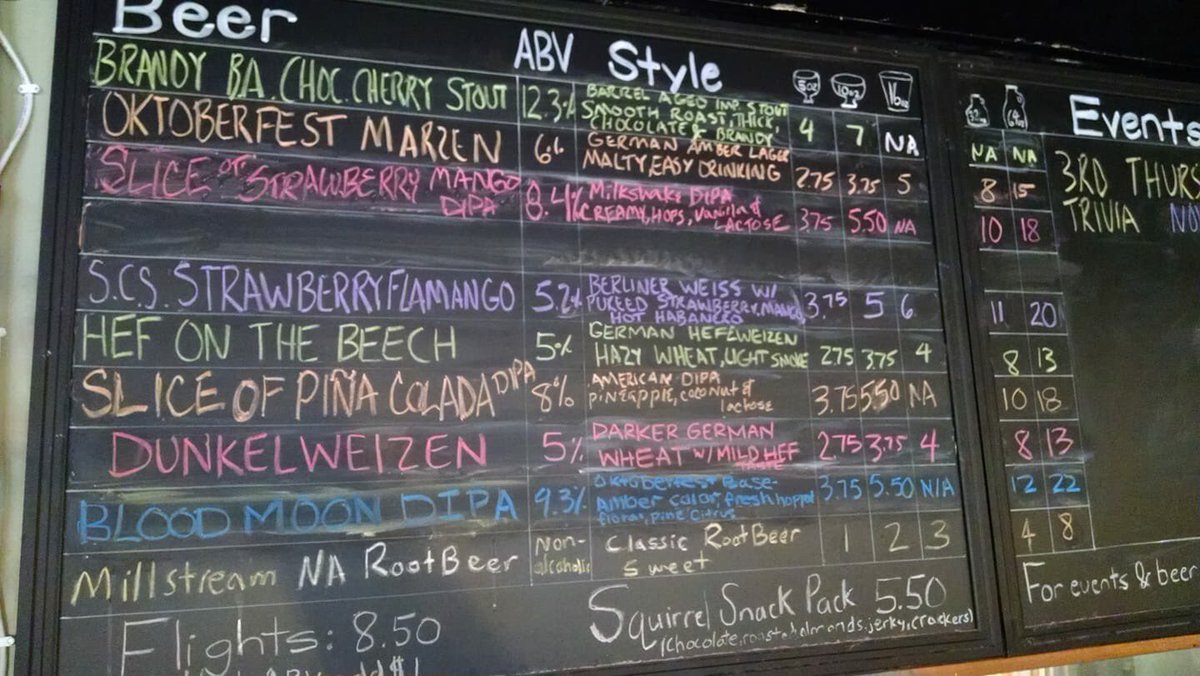 Beer ABV Style 5oz 10oz 16oz
BRANDY B.A. CHOC. CHERRY STOUT 12.3% BARREL AGED IMP. STOUT
SMOOTH ROAST, THICK,
CHOCOLATE & BRANDY 4 7 NA
OKTOBERFEST MARZEN 6% GERMAN AMBER LAGER
MALTY, EASY DRINKING 2.75 3.75 5
SLICE OF STRAWBERRY MANGO
DIPA 8.4% Milkshake DIPA
CREAMY, HOPS, Vanilla &
LACTOSE 3.75 5.50 NA
S.C.S. STRAWBERRY FLAMANGO 5.2% BERLINER WEISS W/
PUREED STRAWBERRY, MANGO,
HOT HABANERO 3.75 5 6
HEF ON THE BEECH 5% GERMAN HEFEWEIZEN
HAZY WHEAT, LIGHT SMOKE 2.75 3.75 4
SLICE OF PIÑA COLADA DIPA 8% AMERICAN DIPA
PINEAPPLE, COCONUT &
lactose 3.75 5.50 NA
DUNKELWEIZEN 5% DARKER GERMAN
WHEAT W/ MILD HEF
TASTE 2.75 3.75 4
BLOOD MOON DIPA 9.3% Oktoberfest Base-
Amber color, fresh hopped
floral, pine citrus 3.75 5.50 N/A
Millstream NA Root Beer Non-
alcoholic Classic Root Beer
Sweet 1 2 3
Flights: 8.50
Squirrel Snack Pack 5.50
(chocolate, roasted almonds, jerky, crackers)
32oz 64oz
NA NA
8 15
10 18
11 20
8 13
10 18
8 13
12 22
4 8
Events
3RD THURS
TRIVIA
For events & beer